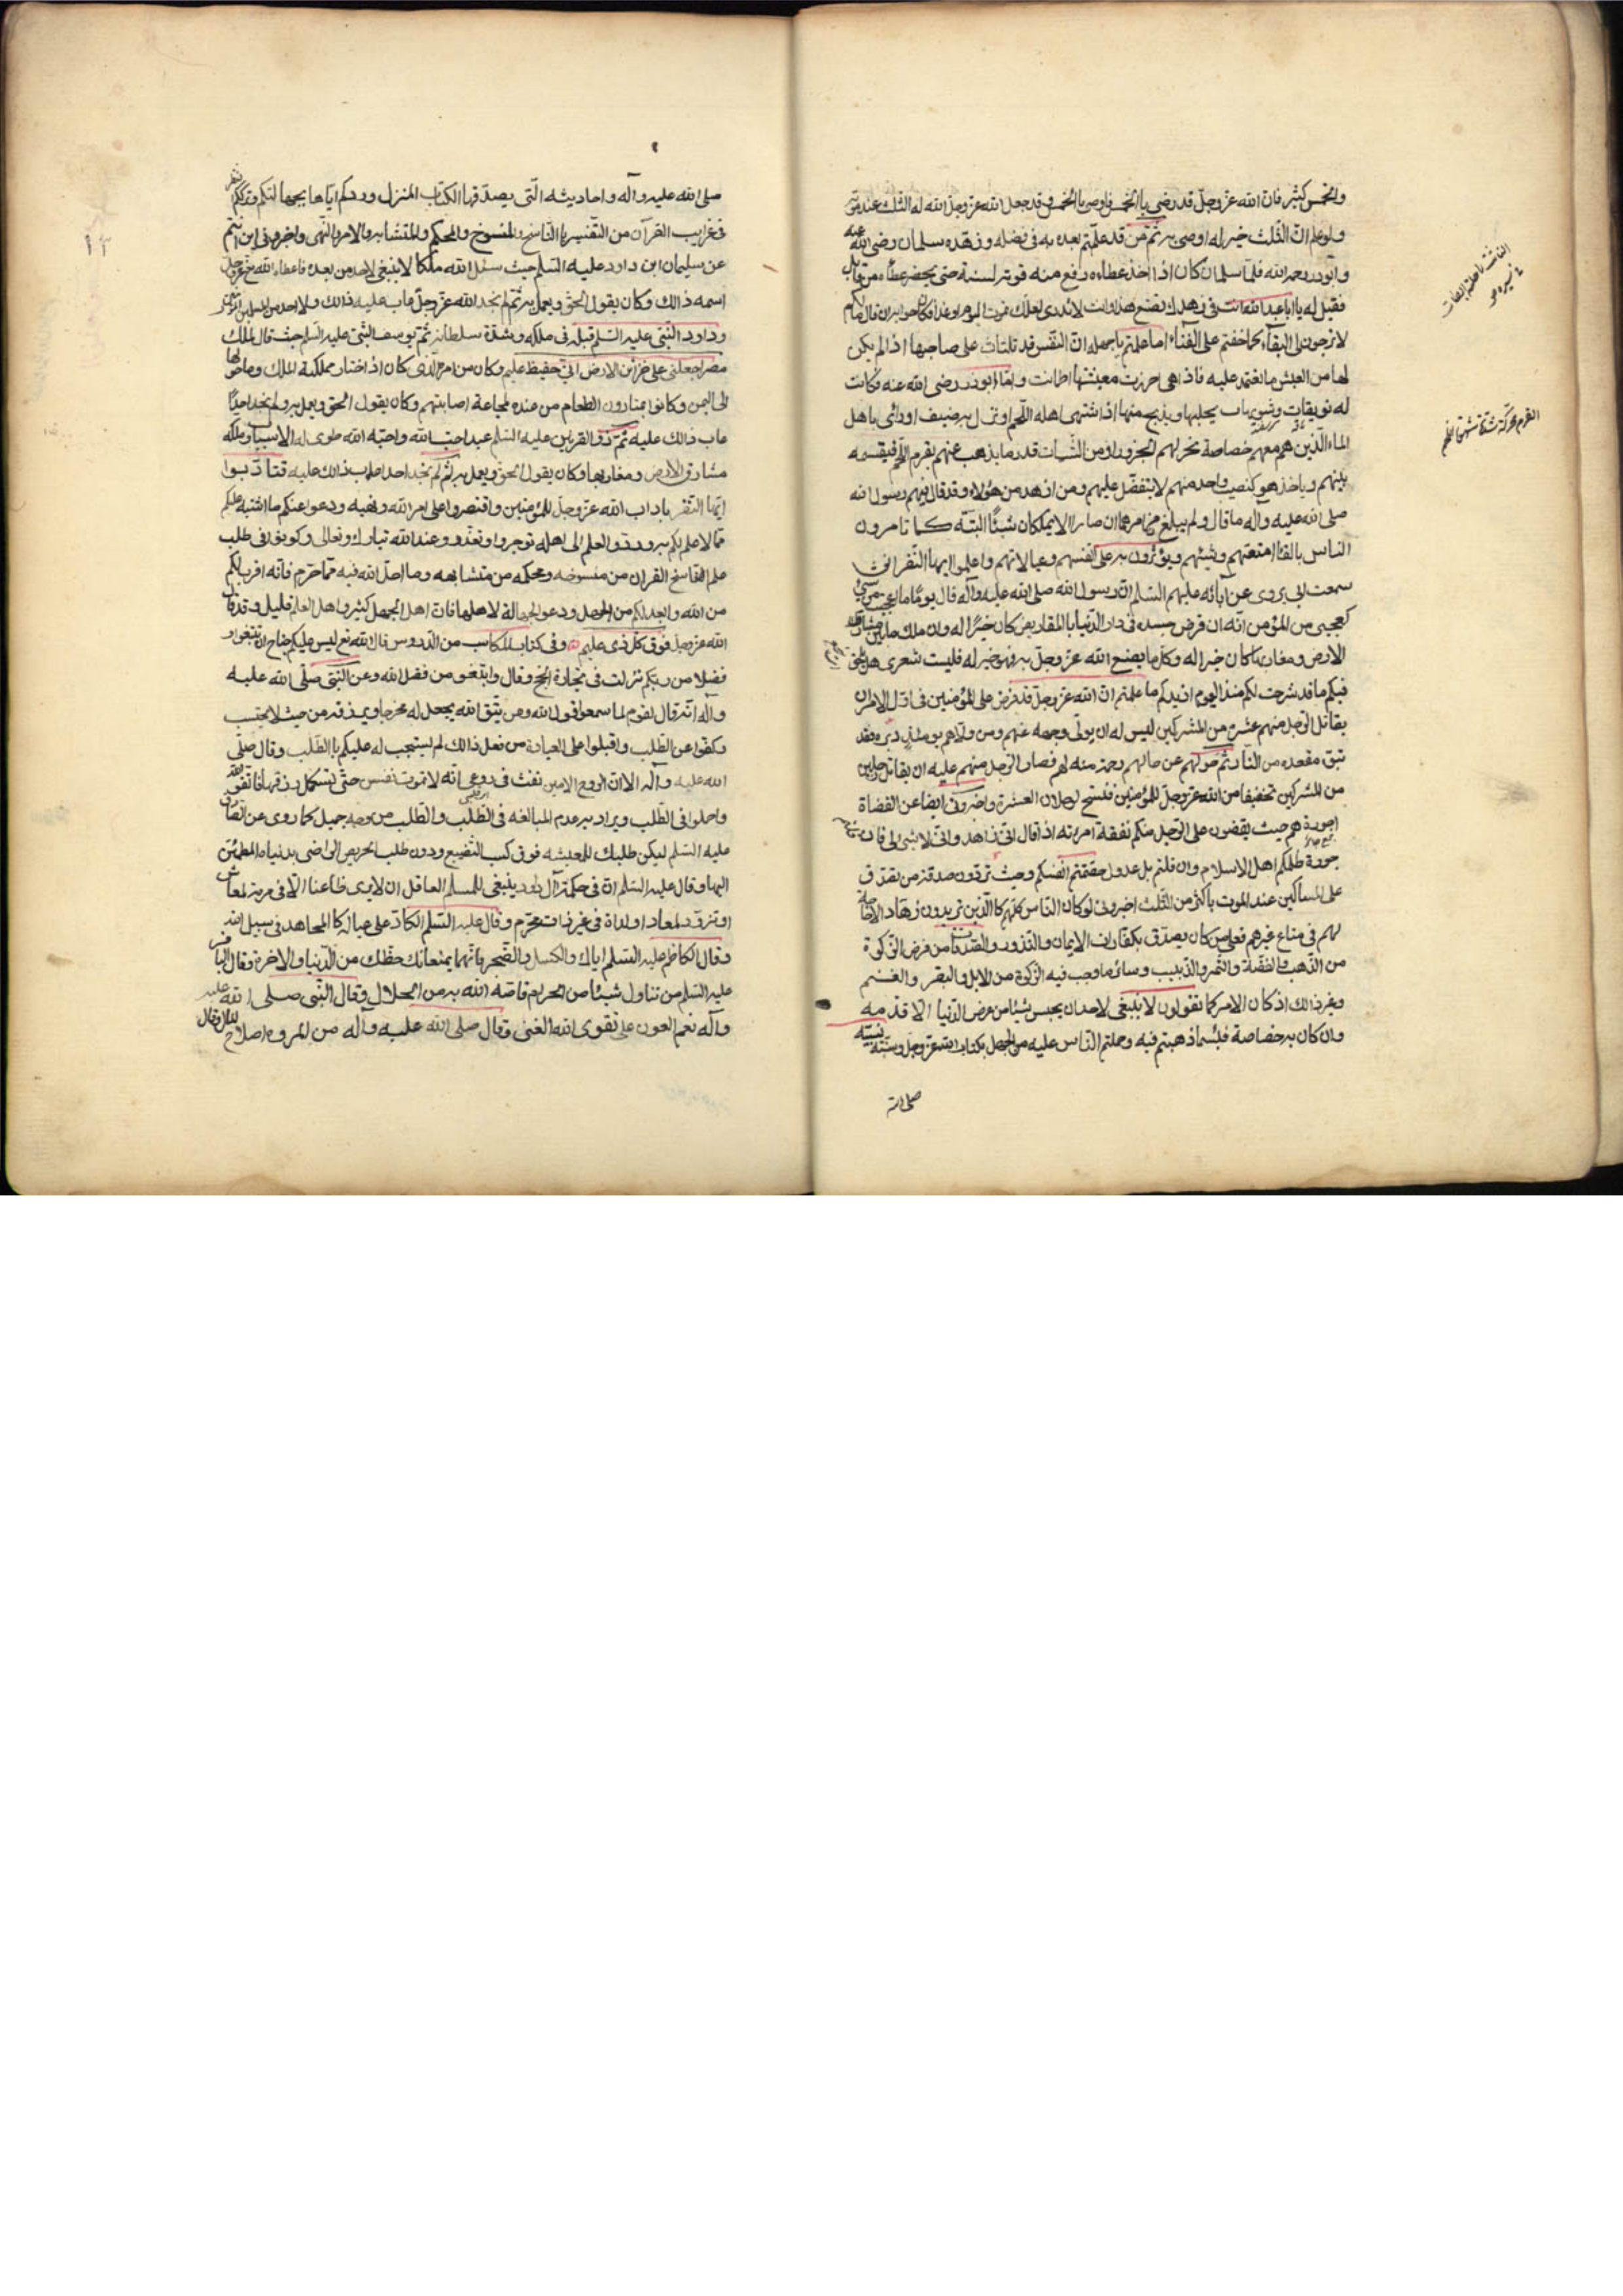 والخمس كثير فان الله عز وجل قد رضى باالخمس فاوصى باالخمس وقد جعل الله عز وجل الله له الثلث عند موته
ولو علم ان الثلث خير له اوصى به ثم من قد علمتم بعده به فى فضله وزهده سلمان رضى الله عنه
وابوذر رحمه الله فلما سلمان كان اذا اخذ عطاءه رفع منه قوته لسنة حتى يحضر عطاءه من قابل
فقيل له يا ابا عبد الله انت فى زهدك تصنع هذا وانت لا تدرى لعلك تموت اليوم او غدا فكان جوابه ان قال مالكم
لا ترجون لى البقاء كما خفتم على الفناء اما علمتم يا جهله ان النفس قد تلتاث على صاحبها اذا لم يكن
لها من العيش ما تعتمد عليه فاذا هى احرزت معيشتها اطمانت واما ابوذر رضى الله عنه فكانت
له نويقات وشويهات يحلبها ويذبح منها اذا اشتهى اهله اللحم او نزل به ضيف او رائى باهل
الماء الذين هم معهم خصاصة نحر لهم الجزور او من الشيات قدر ما يذهب عنهم بقرم اللحم فيقسمه
بينهم وياخذ هو كنصيب واحد منهم لا يتفضل عليهم ومن ازهد من هؤلاء وقد قال فيهم رسول الله
صلى الله عليه وآله ما قال ولم يبلغ من امرهما ان صارا لا يملكان شيئا البتة كما تامرون
الناس بالقاء امتعتهم وشيئهم ويؤثرون به على انفسهم وعيالاتهم واعلموا ايها النفر انى
سمعت ابى يروى عن آبائه عليهم السلم ان رسول الله صلى الله عليه وآله قال يوما ما عجبت من شيئ
كعجبى من المؤمن انه ان قرض جسده فى دار الدنيا بالمقاريض كان خيرا له وان ملك ما بين مشارق
الارض ومغاربها كان خيرا له وكل ما يصنع الله عز وجل به فهو خير له فليت شعرى هل يحق
فيكم ما قد شرحت لكم منذ اليوم ام ازيدكم ما علمتم ان الله عز وجل قد فرض على المؤمنين فى اول الامر ان
يقاتل الرجل منهم عشرة من المشركين ليس له ان يولى وجهه عنهم ومن ولاهم يومئذ دبره فقد
تبوء مقعده من النار ثم حولهم عن حالهم رحمة منه لهم فصار الرجل منهم عليه ان يقاتل رجلين
من المشركين تخفيفا من الله عز وجل للمؤمنين فنسخ الرجلان العشرة واخبرونى ايضا عن القضاة
اجورة هم حيث يقضون على الرجل منكم نفقة امرئته اذا قال انى زاهد وانى لا شئ لى فان قلتم
جورة ظلمكم اهل الاسلام وان قلتم بل عدول خصمتم انفسكم وحيث تردون صدقة من تصدق
على المساكين عند الموت باكثر من الثلث اخبرونى لو كان الناس كلهم كا الذين تريدون زهادا لا حاجة
لهم فى متاع غيرهم فعلى من كان يصدق بكفارات الايمان والنذور والصدقات من فرض الزكوة
من الذهب والفضة والتمر والزبيب وسائر ما وجب فيه الزكوة من الابل والبقر والغنم
وغير ذالك اذ كان الامر كما تقولون لا ينبغى لاحد ان يحبس شيئا من عرض الدنيا الا قدمه
وان كان به خصاصة فبئسما ذهبتم فيه وحملتم الناس عليه من الجهل بكتاب الله عز وجل وسنة نبيه
صلى الله
القرم محركة شدة شهوة اللحم
صلى الله عليه وآله واحاديثه التى يصدقها الكتاب المنزل وردكم اياها بجهالتكم وترككم النظر
فى غرايب القرآن من التفسير با الناسخ والمنسوخ والمحكم والمتشابه والامر والنهى واخبرونى اين انتم
عن سليمان ابن داود عليه السلم حيث سئل الله ملكا لا ينبغى لاحد من بعده فاعطاه الله عز وجل
اسمه ذالك وكان يقول الحق ويعمل به ثم لم نجد الله عز وجل عاب عليه ذالك ولا احد من المسلمين
وداود النبى عليه السلم قبله فى ملكه وشدة سلطانه ثم يوسف النبى عليه السلم حيث قال لملك
مصر اجعلنى على خزائن الارض انى حفيظ عليم وكان من امره الذى كان اذ اختار مملكة الملك وما حولها
الى اليمن وكانوا يمتارون الطعام من عنده لمجاعة اصابتهم وكان يقول الحق ويعمل به ولم نجد احدا
عاب ذالك عليه ثم ذو القرنين عليه السلم عبد احب الله واحبه الله طوى له الاسباب وملكه
مشارق الارض ومغاربها وكان يقول الحق ويعمل به ثم لم نجد احدا عاب ذالك عليه فتادبوا
ايها النفر باداب الله عز وجل للمؤمنين واقتصروا على امر الله ونهيه ودعوا عنكم ما اشتبه عليكم
مما لا علم لكم به وردوا العلم الى اهله توجروا وتعذروا عند الله تبارك وتعالى وكونوا فى طلب
علم الناسخ القران من منسوخه ومحكمه من متشابهه وما احل الله فيه مما حرم فانه اقرب لكم
من الله وابعد لكم من الجهل ودعو الجهالة لاهلها فان اهل الجهل كثير واهل العلم قليل وقد قال
الله عز وجل فوق كل ذى علم عليم وفى كتاب المكاسب من الدروس قال الله تع ليس عليكم جناح ان تبتغوا
فضلا من ربكم نزلت فى تجارة الحج وقال وابتغو من فضل الله وعن النبى صلى الله عليه
وآله انه قال لقوم لما سمعوا قول الله ومن يتق الله يجعل له مخرجا ويرزقه من حيث لا يحتسب
وكفوا عن الطلب واقبلوا على العبادة من فعل ذالك لم يستجب له عليكم باالطلب وقال صلى
الله عليه وآله الا ان الروح الامين نفث فى روعى انه لا تموت نفس حتى تستكمل رزقها فاتقو الله
واجملوا فى الطلب ويراد به عدم المبالغه فى الطلب والطلب من وجه جميل كما روى عن الصادق
عليه السلم ليكن طلبك للمعيشه فوق كسب المضيع ودون طلب الحريص الراضى بدنياه المطمئن
اليها وقال عليه السلم ان فى حكمة آل داود ينبغى للمسلم العاقل ان لا يرى ظاعنا الا فى مرمة لمعاش
او تزود لمعاد او لذة فى غير ذات محرم وقال عليه السلم الكاد على عياله كا المجاهد فى سبيل الله
وقال الكاظم عليه السلم اياك والكسل والضجر فانهما يمنعانك حظك من الدنيا والاخرة وقال الباقر
عليه السلم من تناول شيئا من الحرام قاصه الله به من الحلال وقال النبى صلى الله عليه
وآله نعم العون على تقوى الله الغنى وقال صلى الله عليه وآله من المروءة اصلاح المال وقال